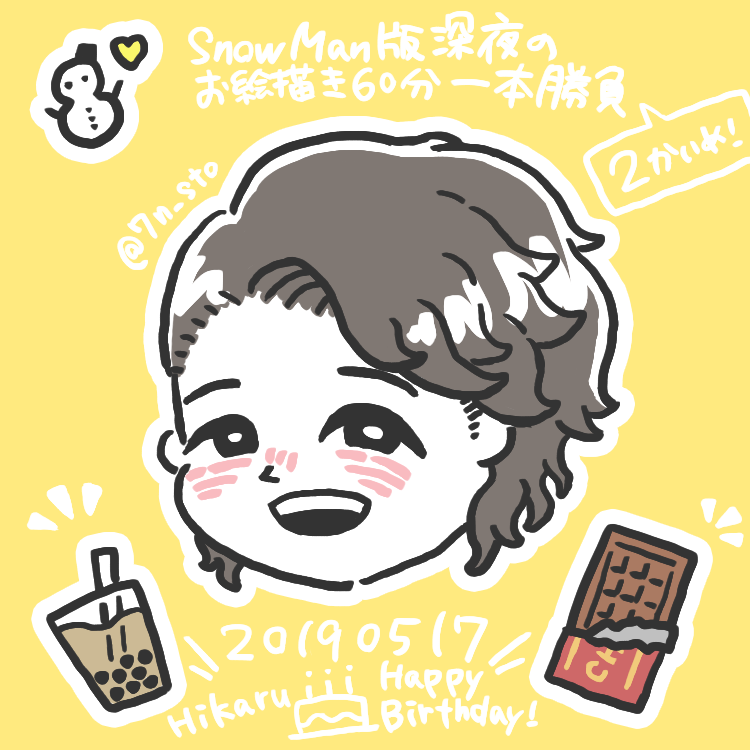 SnowMan版深夜の
お絵描き60分一本勝負
2かいめ!
@7n_sto
20190517
Hikaru
Happy
Birthday!
CH